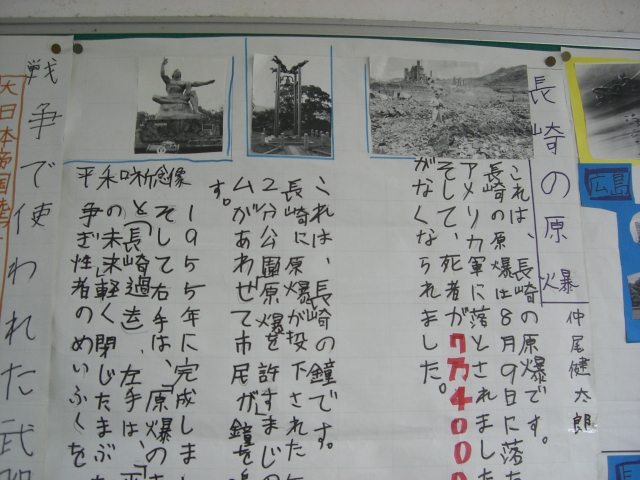 長崎の原爆
仲尾健太郎
これは、長崎の原爆です。
長崎の原爆は8月9日に落
アメリカ軍に落とされました
そして、死者が7万4000
がなくなられました。
これは、長崎の鐘です。
長崎に原爆が投下された
2分公園「原爆を許すまじの
ムがあわせて市民が鐘を
す。
平和祈念像
1955年に完成しまし
そして右手は、「原爆の
と「長崎過去」、左手は、「平
和の未来」軽く閉じたまぶた
争ぎ性者のめいふくを
戦争で使われた武器
大日本帝国陸
広島